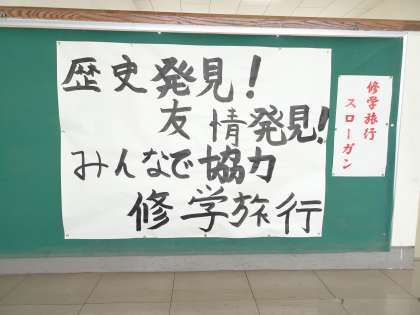 歴史発見!
友情発見!
みんなで協力
修学旅行
修学旅行
スローガン